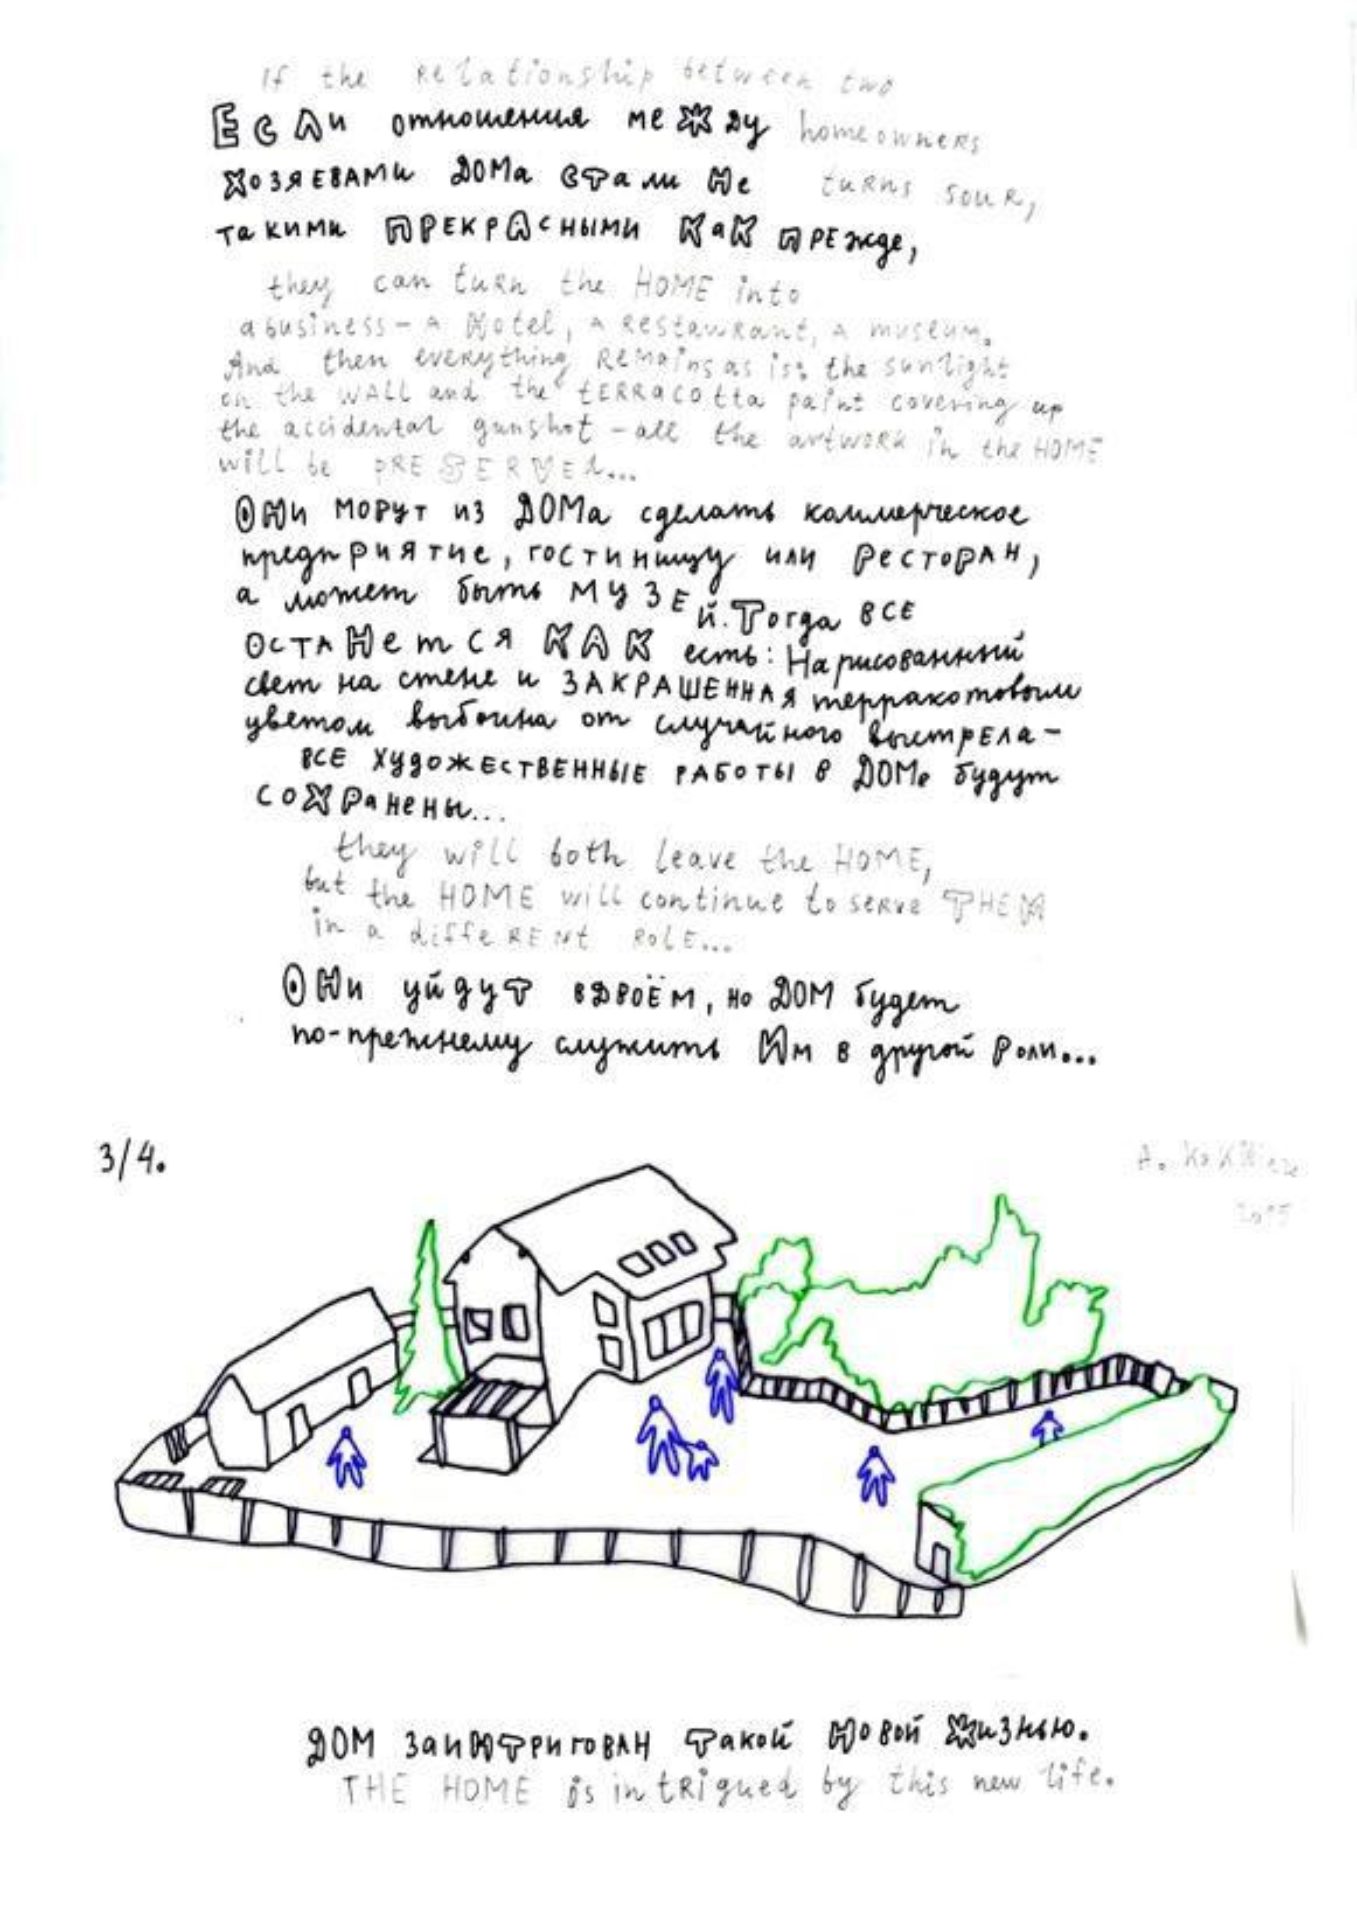 If the Relationship between two
ЕСЛи отношения меЖду homeowners
ХОЗЯЕВАМи ДОМа стали Не turns souR,
такими ПРЕКРАСНЫМИ КаК ПРЕжде,
they can tuRn the HOME into
a business – A Hotel, A RestauRant, A museum.
And then eveRything Remains as is: the sunlight
on the WALL and the tERRacotta paint coverIng up
the accidental gunshot – all the artwoRk in the HOME
will be pRESERVEd...
ОНи могут из ДОМа сделать коммерческое
предпРИЯТИе, гостиницу или РЕСТОРАН,
а может быть МУЗЕй. Тогда ВСЕ
ОСТАНетСЯ КАК есть: Нарисованный
свет на стене и ЗАКРАШЕННАЯ терракотовым
цветом выбоина от случайного выстрЕла –
ВСЕ ХУдОЖЕСТВЕННЫЕ РАБОТЫ В ДОМе будут
СОХРаНеНы...
they will both leave the HOME,
but the HOME will continue to seRve THEM
in a diffeRENt RolE...
ОНи уйдуТ вДВОЁМ, но ДОМ будет
по-прежнему служить Им в другой Роли...
3/4.
A.
2015
ДОМ заиНТРигОВАН Такой Новой Жизнью.
THE HOME is intRigued by this new life.